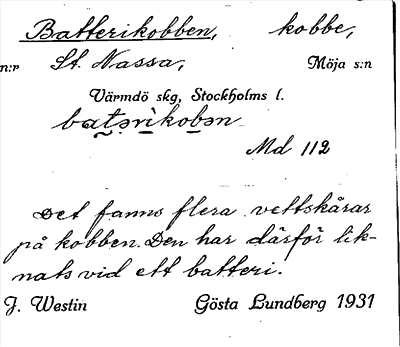 Batterikobben, kobbe,
n:r St. Nassa, Möja s:n
Värmdö skg, Stockholms l.
batərikobən
Md 112
Det fanns flera vettskårar
på kobben. Den har därför lik-
nats vid ett batteri.
J. Westin Gösta Lundberg 1931